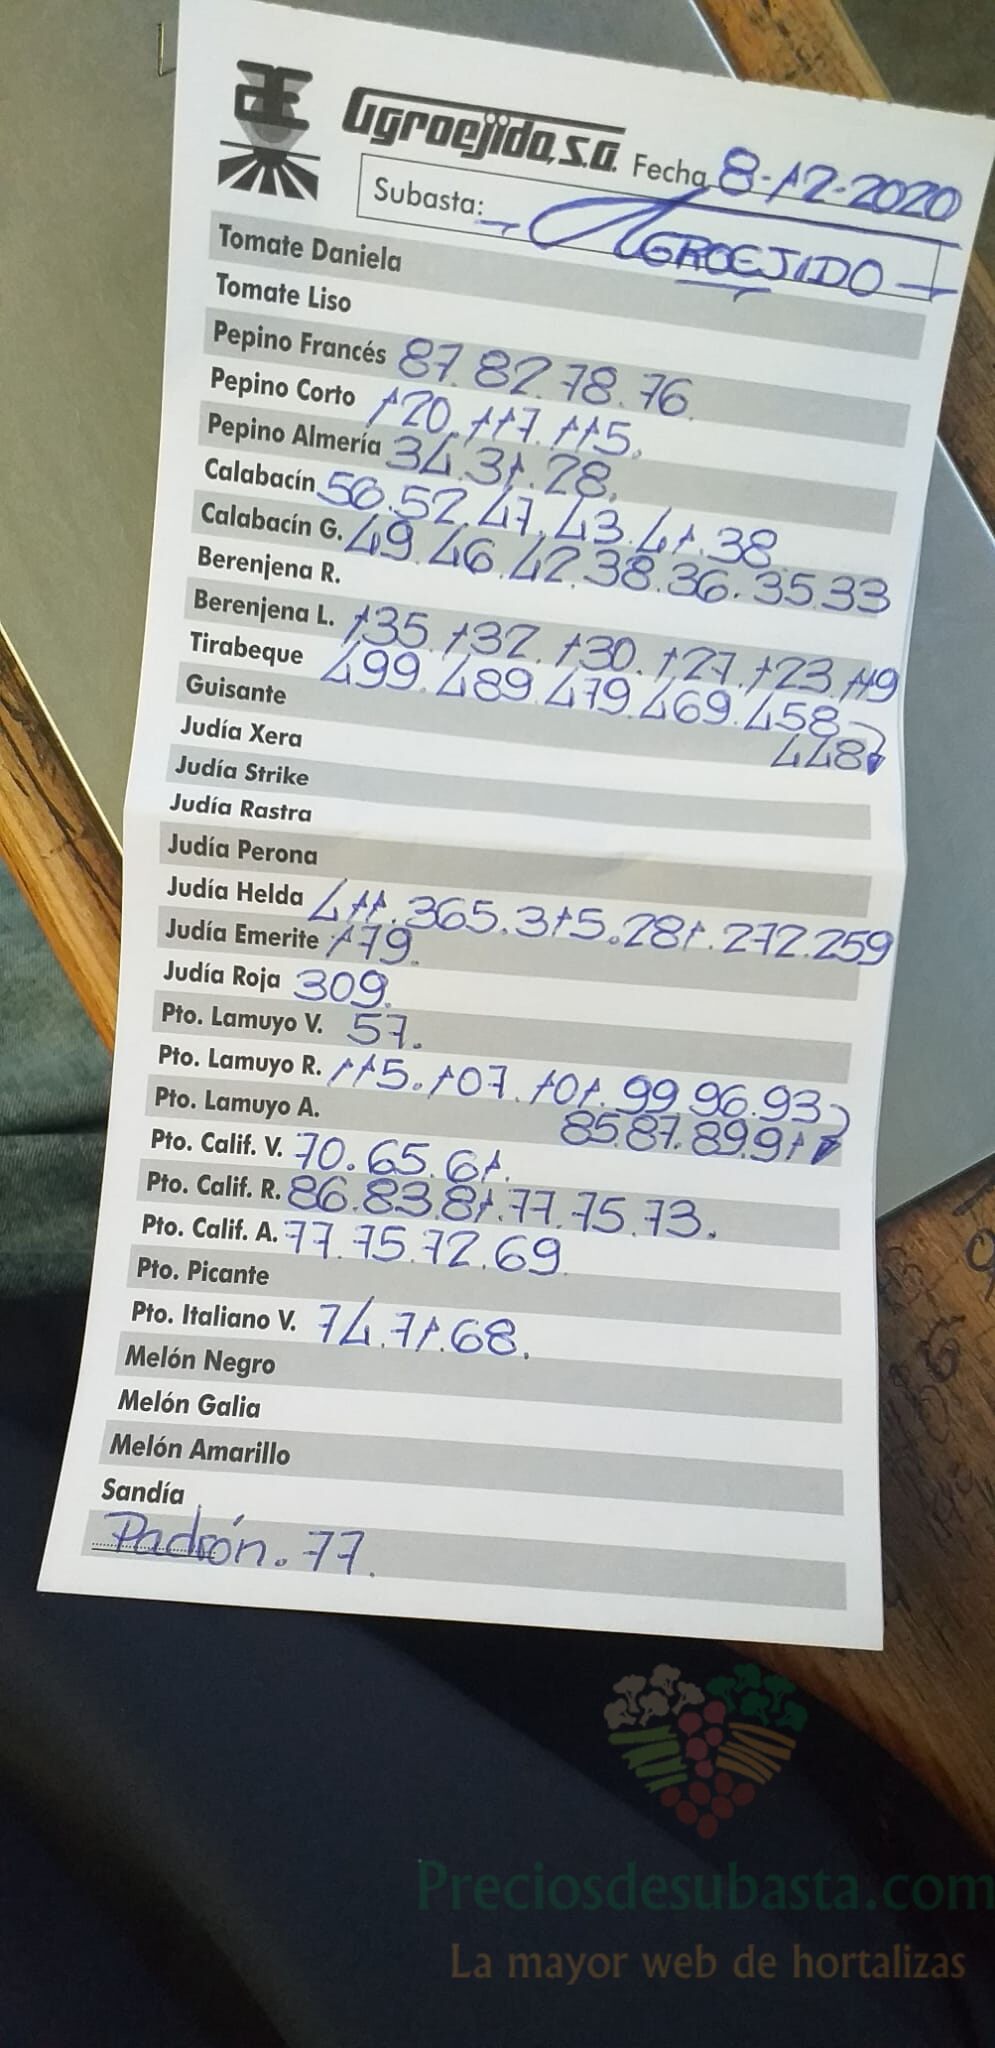 Agroejido, S.A. Fecha 8-12-2020
Subasta: - AGROEJIDO -
Tomate Daniela
Tomate Liso
Pepino Francés 87. 82. 78. 76.
Pepino Corto 120. 117. 115.
Pepino Almería 34. 31. 28.
Calabacín 56. 52. 47. 43. 41. 38.
Calabacín G. 49. 46. 42. 38. 36. 35. 33
Berenjena R.
Berenjena L. 135. 132. 130. 127. 123. 119
Tirabeque 499. 489. 479. 469. 458
448
Guisante
Judía Xera
Judía Strike
Judía Rastra
Judía Perona
Judía Helda 411. 365. 315. 281. 272. 259
Judía Emerite 179.
Judía Roja 309.
Pto. Lamuyo V. 57.
Pto. Lamuyo R. 115. 107. 101. 99. 96. 93
85. 87. 89. 91
Pto. Lamuyo A.
Pto. Calif. V. 70. 65. 61.
Pto. Calif. R. 86. 83. 81. 77. 75. 73.
Pto. Calif. A. 77. 75. 72. 69.
Pto. Picante
Pto. Italiano V. 74. 71. 68.
Melón Negro
Melón Galia
Melón Amarillo
Sandía
Padrón. 77.
Preciosdesubasta.com
La mayor web de hortalizas